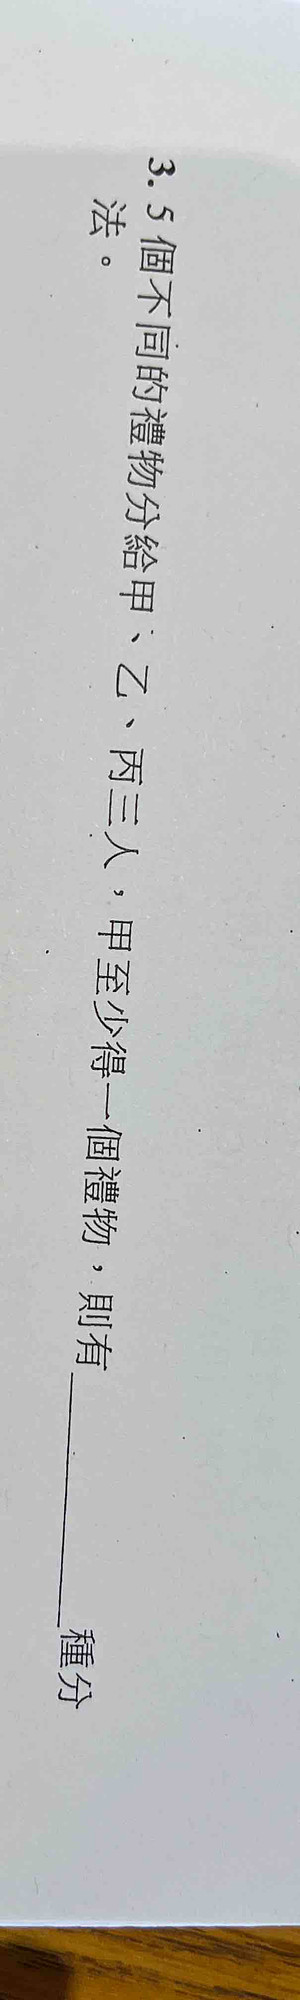 3. 5 個不同的禮物分給甲、乙、丙三人，甲至少得一個禮物，則有＿＿＿＿種分
法。